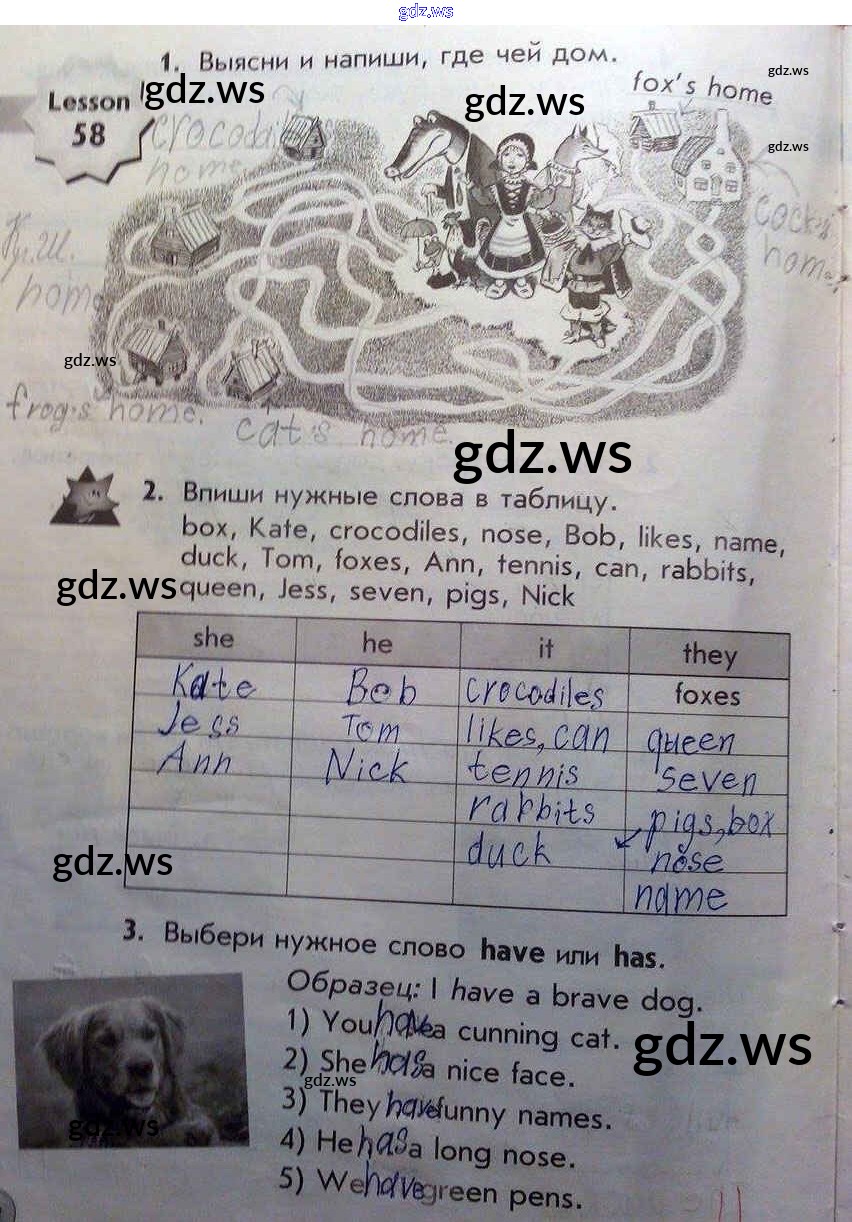 gdz.ws
1. Выясни и напиши, где чей дом.
Lesson
58
gdz.ws
gdz.ws
gdz.ws
fox's home
gdz.ws
crocodile's
home
cock's
home
home
gdz.ws
frog's home.
cat's home.
gdz.ws
2. Впиши нужные слова в таблицу.
box, Kate, crocodiles, nose, Bob, likes, name,
duck, Tom, foxes, Ann, tennis, can, rabbits,
queen, Jess, seven, pigs, Nick
gdz.ws
she he it they
Kate Bob crocodiles foxes
Jess Tom likes, can queen
Ann Nick tennis seven
rabbits pigs, box
duck nose
name
gdz.ws
3. Выбери нужное слово have или has.
Образец: I have a brave dog.
1) You have a cunning cat.
gdz.ws
2) She has a nice face.
gdz.ws
3) They have funny names.
gdz.ws
4) He has a long nose.
5) We have green pens.